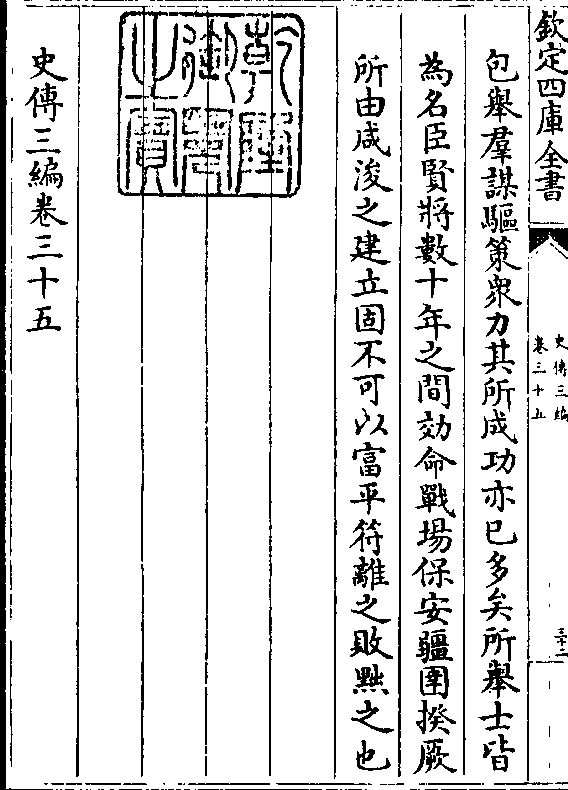 欽定四庫全書
史傳三編
卷三十五
三十二
包舉羣謀驅策衆力其所成功亦已多矣所舉士皆
為名臣賢將數十年之間効命戰場保安疆圉揆厥
所由咸浚之建立固不可以富平符離之敗黜之也
乾隆御覽之寳
史傳三編卷三十五